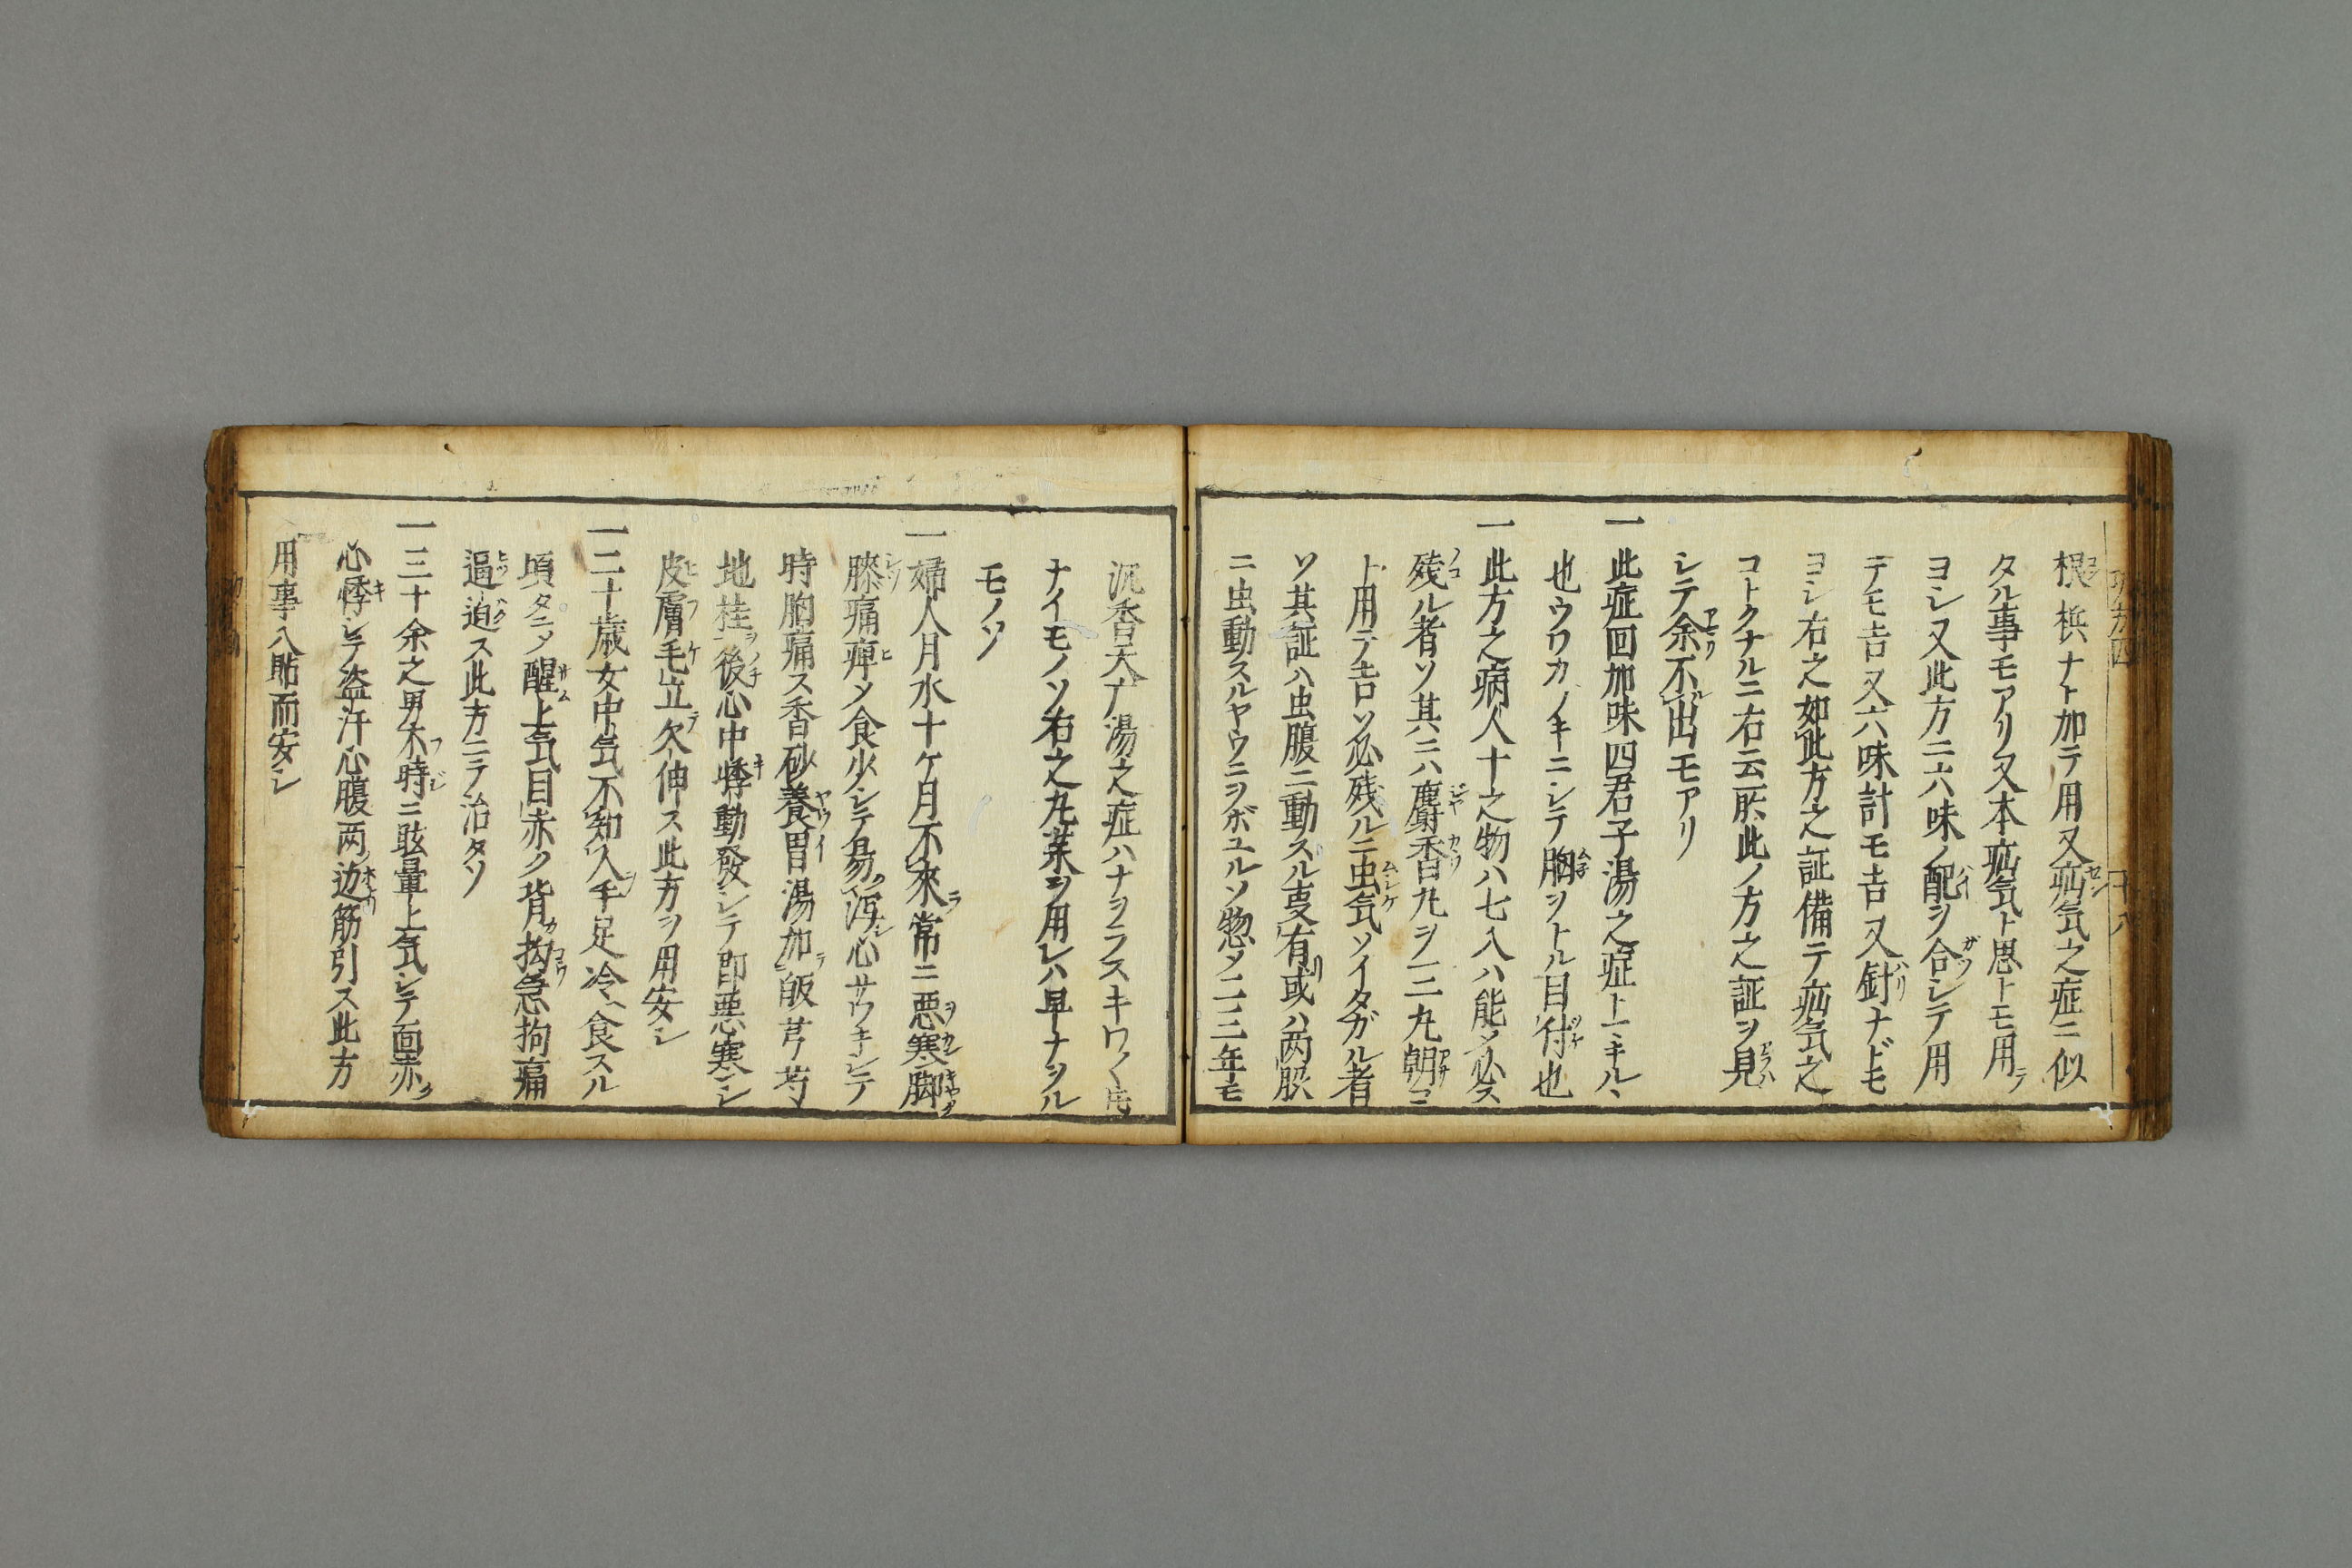 根梹ナト加テ用又疝気之症ニ似
タル事モアリ又本疝気ト思トモ用テ
ヨシ又此方ニ六味ノ配ヲ合シテ用
テモ吉又六味計モ吉又針ナドモ
ヨシ右之如此方之証備テ疝気之
コトクナルニ右云所此ノ方之証ヲ見
シテ余不出モアリ
一此症回加味四君子湯之症トミキルハ
也ウワカノキニシテ胸ヲトル目付也
一此方之病人十之物ハ七八ハ能メ必ス
残ル者ソ其ニハ麝香丸ヲ一二丸朝コ
ト用テ吉ソ必残ルニ虫気ソイタガル者
ソ其証ハ虫腹ニ動スル事有或ハ两脇
ニ虫動スルヤウニヲボユルソ惣メ二三年モ
沉香天广湯之症ハナヲラスキワノ
ナイモノソ右之丸薬ヲ用レハ早ナヲル
モノソ
一婦人月水十ケ月不來常ニ悪寒脚
膝痛痺メ食少シテ易瀉心サウキシテ
時胸痛ス香砂養胃湯加皈芎芍
地桂後心中悸動發シテ即悪寒シ
皮膚毛立欠伸ス此方ヲ用安シ
一二十歳女中気不知人手足冷食スル
頃タニメ醒上気目赤ク背拘急拘痛
逼迫ス此方ニテ治タソ
一三十余之男不時ニ眩暈上気シテ面赤ク
心悸シテ盗汗心腹两边筋引ス此方
用事八貼而安シ